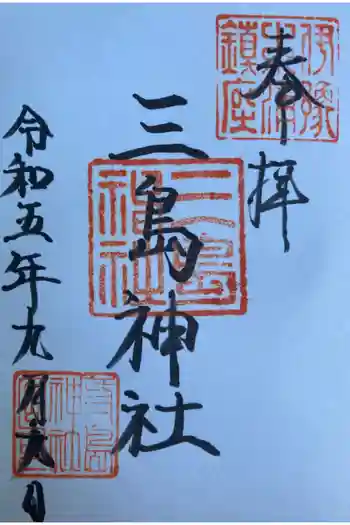 奉拝
伊豫
鎮座
三島神社
三島
神社
令和五年九月六日
三島
神社